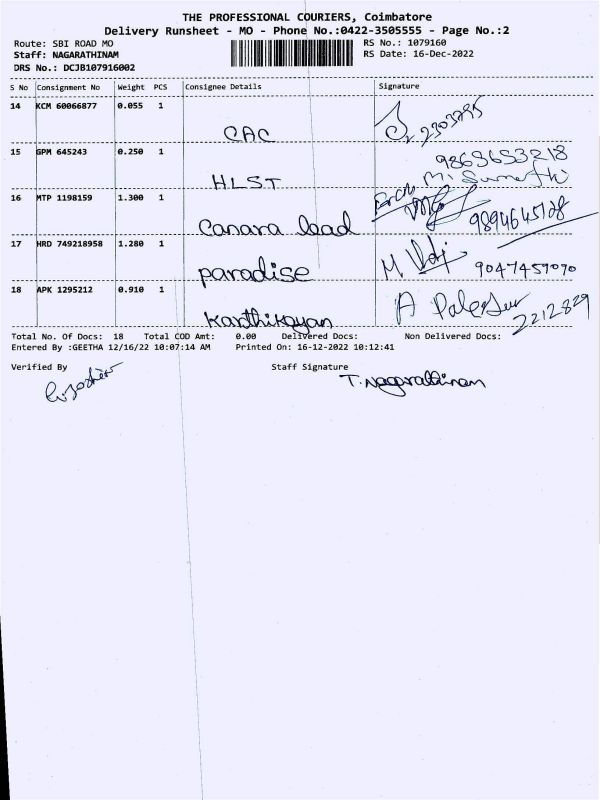 THE PROFESSIONAL COURIERS, Coimbatore
Delivery Runsheet - MO - Phone No.:0422-3505555 - Page No.:2
Route: SBI ROAD MO
Staff: NAGARATHINAM
DRS No.: DCJB107916002
RS No.: 1079160
RS Date: 16-Dec-2022
S No Consignment No Weight PCS Consignee Details Signature
14 KCM 60066877 0.055 1
CAC 2303285
15 GPM 645243 0.250 1
HLST 9863653218
M.
16 MTP 1198159 1.300 1
Canara load 9894645128
17 HRD 749218958 1.280 1
paradise M 9047459090
18 APK 1295212 0.910 1
karthikayan A 2212829
Total No. Of Docs: 18 Total COD Amt: 0.00 Delivered Docs: Non Delivered Docs:
Entered By :GEETHA 12/16/22 10:07:14 AM Printed On: 16-12-2022 10:12:41
Verified By Staff Signature
T. Nagarathinam